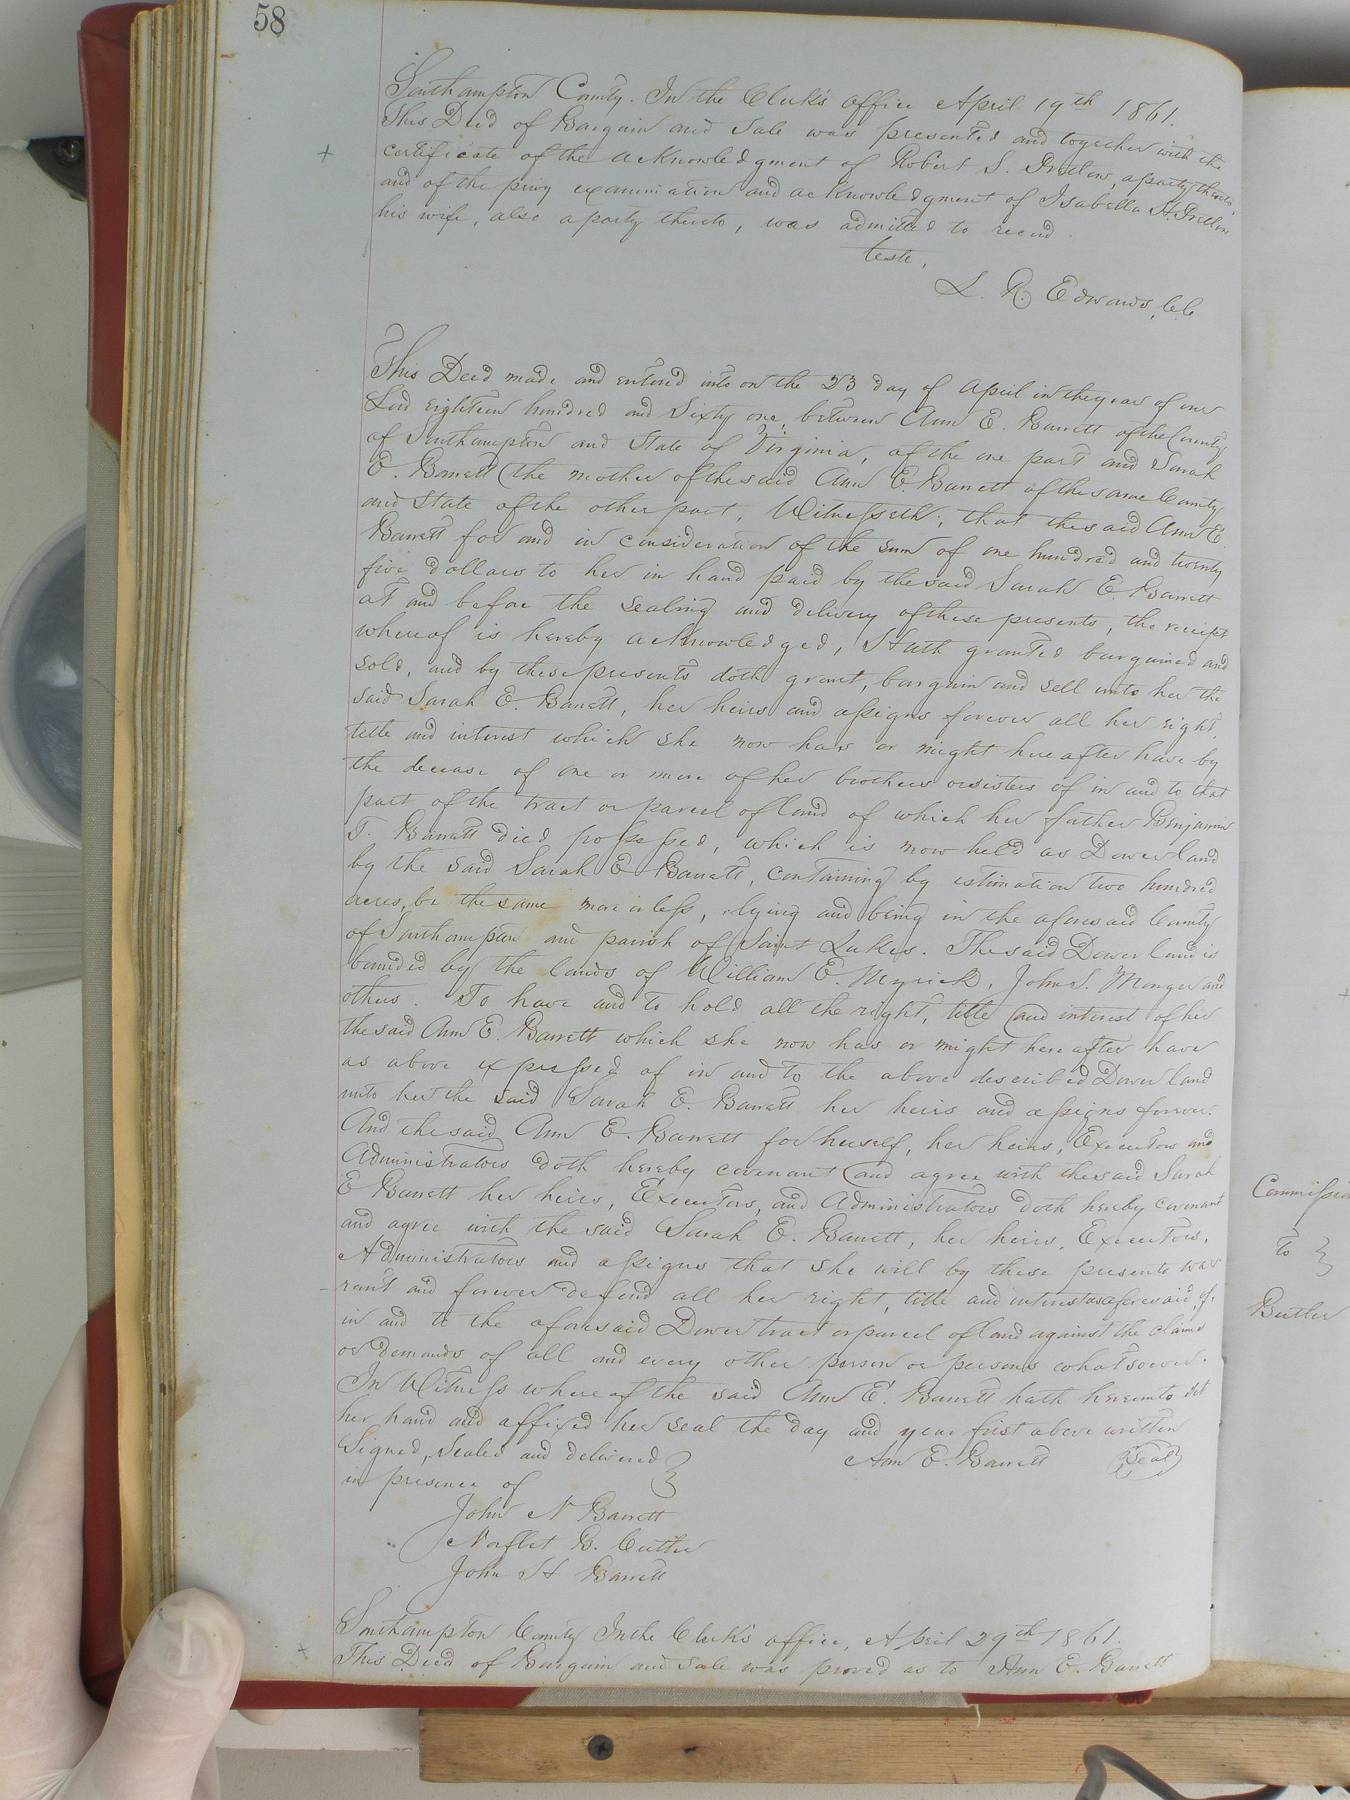 58
Southampton County. In the Clerk's office April 19th 1861.
This Deed of Bargain and Sale was presented and together with the
certificate of the acknowledgment of Robert S. a party thereto,
and of the privy examination and acknowledgment of Isabella H.
his wife, also a party thereto, was admitted to record.
Teste,
L. R. Edwards, C.C.
This Deed made and entered into on the 23 day of April in the year of our
Lord eighteen hundred and Sixty one, between Ann E. Barrett of the County
of Southampton and State of Virginia, of the one part and Sarah
E. Barrett (the mother of the said Ann E. Barrett of the same County
and State of the other part, Witnesseth; that the said Ann E.
Barrett for and in consideration of the sum of one hundred and twenty
five dollars to her in hand paid by the said Sarah E. Barrett
at and before the sealing and delivery of these presents, the receipt
whereof is hereby acknowledged, Hath granted bargained and
sold, and by these presents doth grant, bargain and sell unto her the
said Sarah E. Barrett, her heirs and assigns forever all her right,
title and interest which she now has or might hereafter have by
the decease of one or more of her brothers or sisters of in and to that
part of the tract or parcel of land of which her father Benjamin
T. Barrett died possessed, which is now held as Dower land
by the said Sarah E Barrett, containing by estimation two hundred
acres, be the same more or less, lying and being in the aforesaid County
of Southampton and parish of Saint Lukes. The said Dower land is
bounded by the lands of William E. Myrick, John S. Monger and
others. To have and to hold all the right, title and interest of her
the said Ann E. Barrett which she now has or might hereafter have
as above expressed of in and to the above described Dower land
unto her the said Sarah E. Barrett her heirs and assigns forever.
And the said Ann E. Barrett for herself, her heirs, Executors and
Administrators doth hereby covenant and agree with the said Sarah
E Barrett her heirs, Executors, and Administrators doth hereby covenant
and agree with the said Sarah E. Barrett, her heirs, Executors,
Administrators and assigns that she will by these presents war
rant and forever defend all her right, title and interest as aforesaid of,
in and to the aforesaid Dower tract or parcel of land against the claims
or demands of all and every other person or persons whatsoever.
In Witness whereof the said Ann E. Barrett hath hereunto set
her hand and affixed her seal the day and year first above written
Signed, Sealed and delivered } Ann E. Barrett (Seal)
in presence of
John N Barrett
Norflet B. Cutler
John H Barrett
Southampton County In the Clerk's office, April 29th 1861.
This Deed of Bargain and Sale was proved as to Ann E. Barrett
to }
Butler